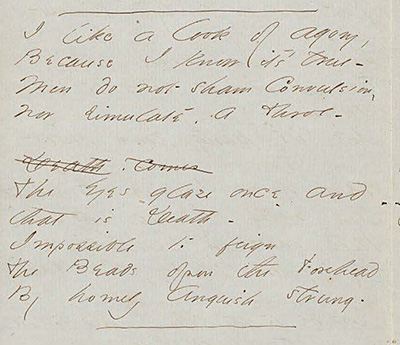 I like a look of Agony,
Because I know it's true -
Men do not sham Convulsion,
Nor simulate, a Throe -
Death, comes
The Eyes glaze once - and
that is Death -
Impossible to feign
The Beads upon the Forehead
By homely Anguish strung.